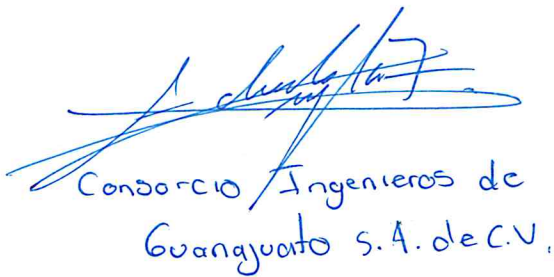 Consorcio Ingenieros de
Guanajuato S.A. de C.V.